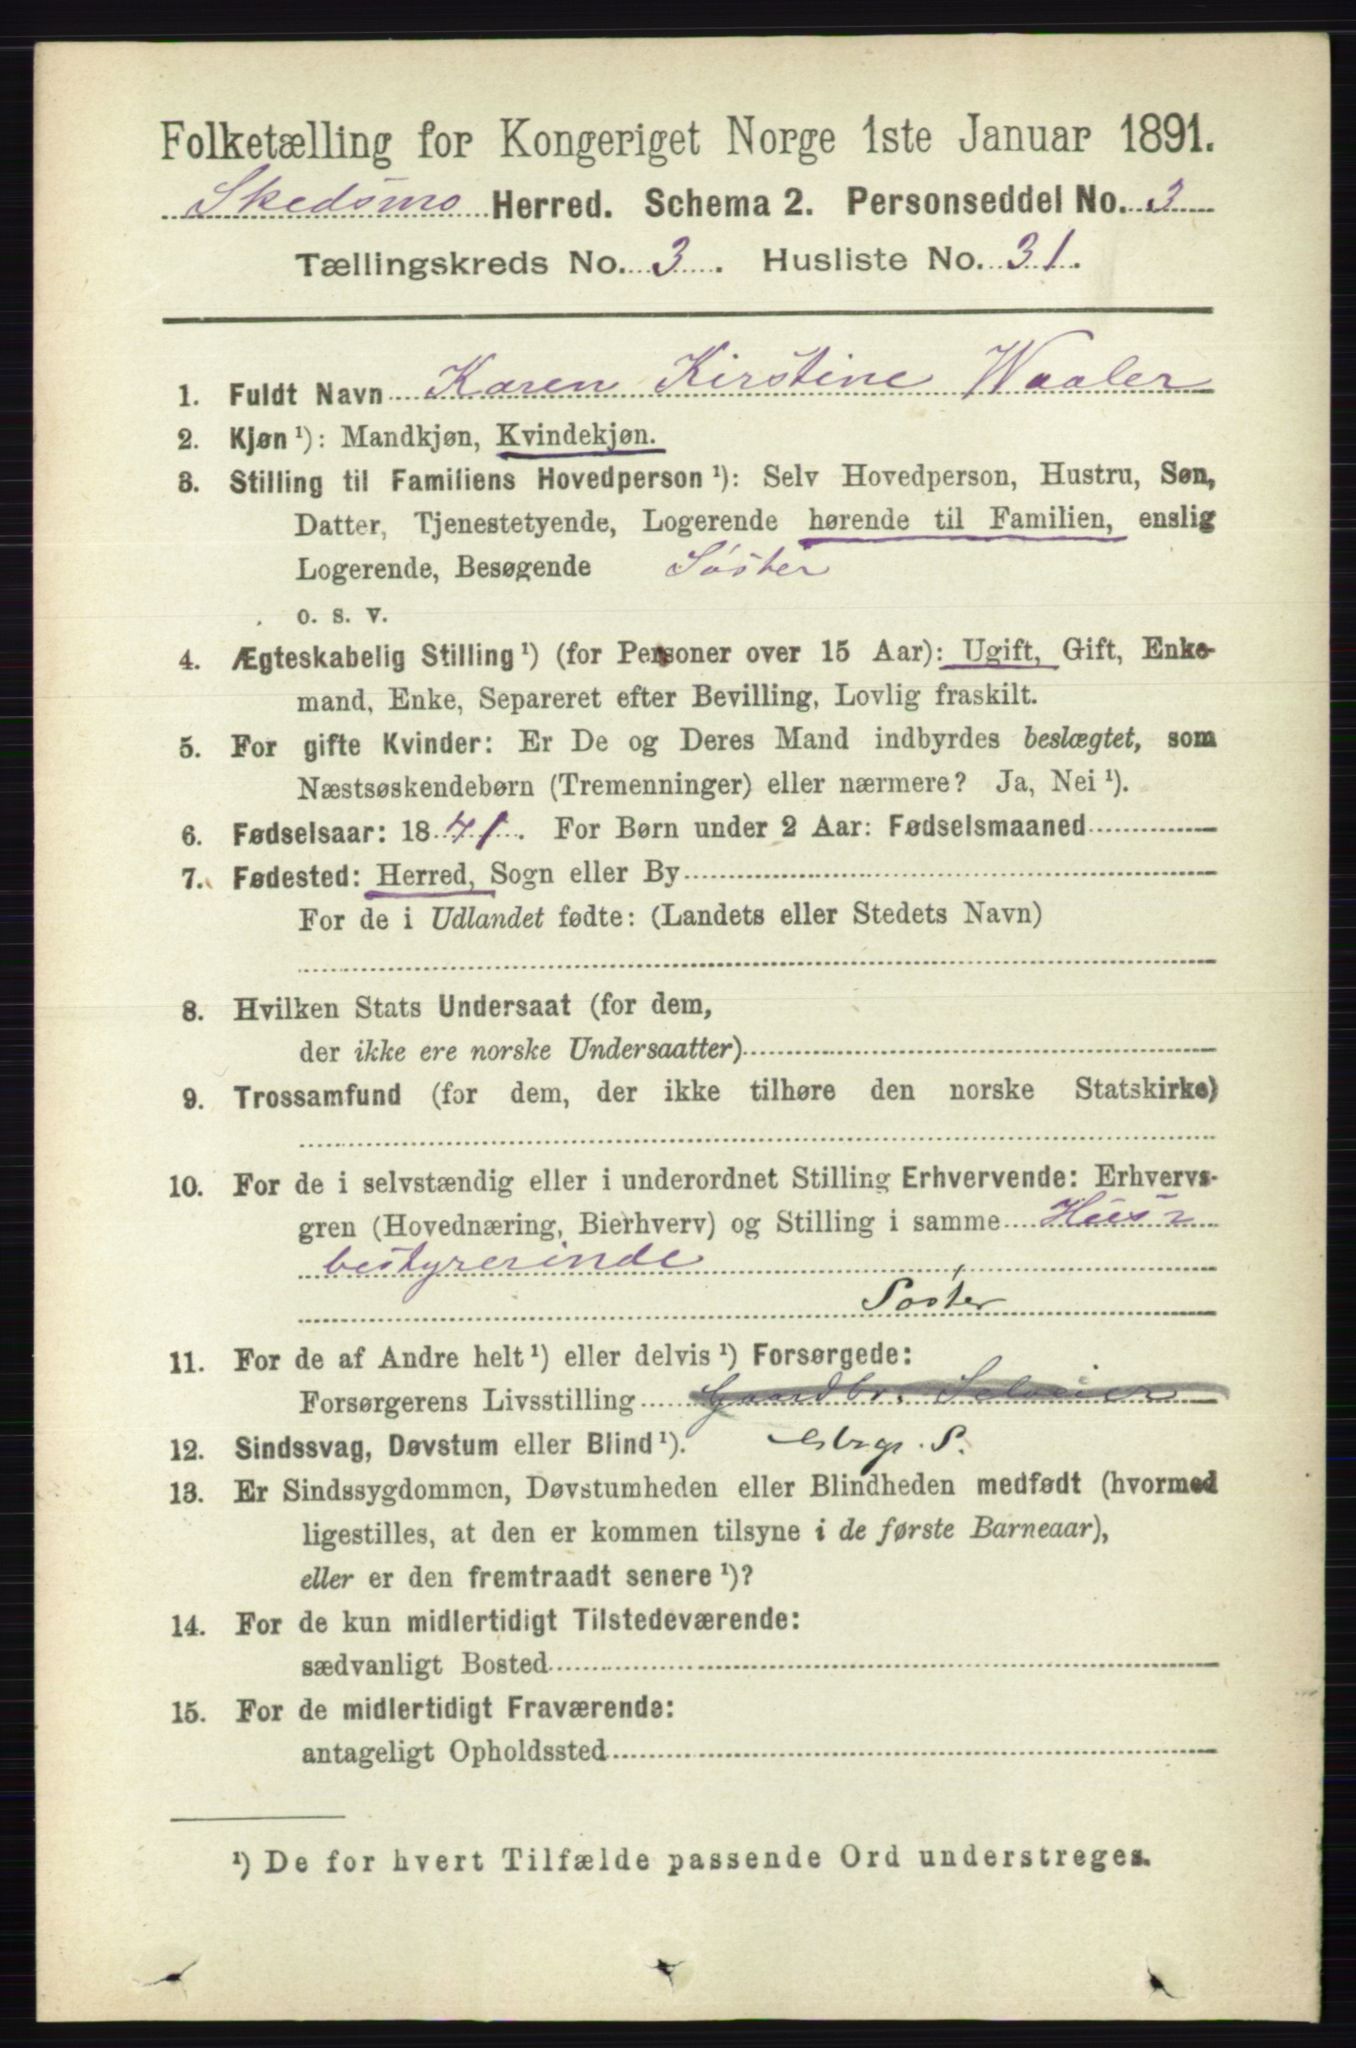 Folketælling for Kongeriget Norge 1ste Januar 1891.
Skedsmo Herred. Schema 2. Personseddel No. 3
Tællingskreds No. 3. Husliste No. 31.
1. Fuldt Navn Karen Kirstine Waaler
2. Kjøn ¹): Mandkjøn, Kvindekjøn.
3. Stilling til Familiens Hovedperson ¹): Selv Hovedperson, Hustru, Søn,
Datter, Tjenestetyende, Logerende hørende til Familien, enslig
Logerende, Besøgende Søster
o. s. v.
4. Ægteskabelig Stilling ¹) (for Personer over 15 Aar): Ugift, Gift, Enke-
mand, Enke, Separeret efter Bevilling, Lovlig fraskilt.
5. For gifte Kvinder: Er De og Deres Mand indbyrdes beslægtet, som
Næstsøskendebørn (Tremenninger) eller nærmere? Ja, Nei ¹).
6. Fødselsaar: 1871. For Børn under 2 Aar: Fødselsmaaned
7. Fødested: Herred, Sogn eller By
For de i Udlandet fødte: (Landets eller Stedets Navn)
8. Hvilken Stats Undersaat (for dem,
der ikke ere norske Undersaatter)
9. Trossamfund (for dem, der ikke tilhøre den norske Statskirke)
10. For de i selvstændig eller i underordnet Stilling Erhvervende: Erhvervs-
gren (Hovednæring, Bierhverv) og Stilling i samme Huus-
bestyrerinde
Søster
11. For de af Andre helt ¹) eller delvis ¹) Forsørgede:
Forsørgerens Livsstilling Gaardbr. Selveier
12. Sindssvag, Døvstum eller Blind ¹). Gbrgr. S.
13. Er Sindssygdommen, Døvstumheden eller Blindheden medfødt (hvormed
ligestilles, at den er kommen tilsyne i de første Barneaar),
eller er den fremtraadt senere ¹)?
14. For de kun midlertidigt Tilstedeværende:
sædvanligt Bosted
15. For de midlertidigt Fraværende:
antageligt Opholdssted
¹) De for hvert Tilfælde passende Ord understreges.